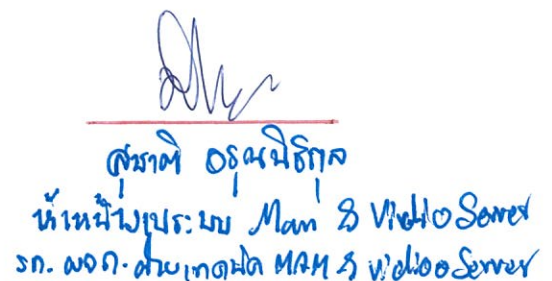 สุชาติ อรุณนิธิกุล
หัวหน้างานระบบ Mam & Video Server
รก. ผจก. ฝ่ายเทคนิค MAM & Video Server